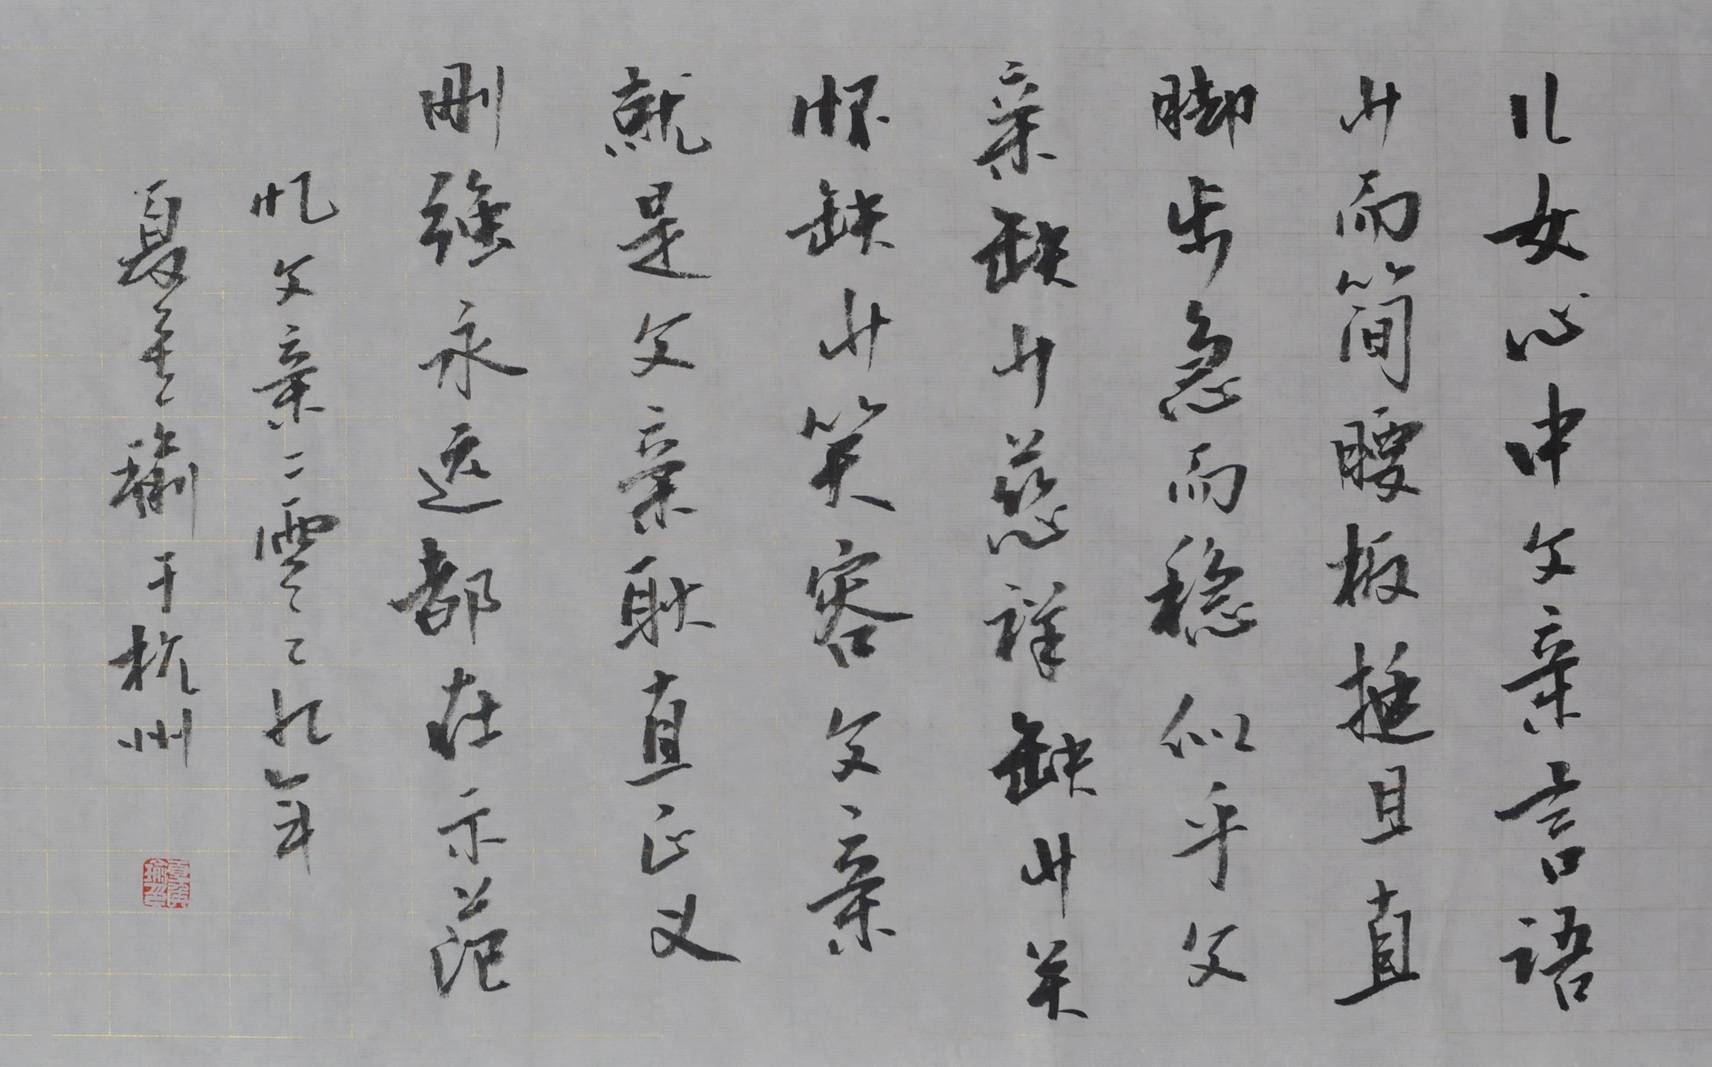 儿女心中父亲言语
少而简腰板挺且直
脚步急而稳似乎父
亲缺少慈祥缺少关
怀缺少笑容父亲
就是父亲耿直正义
刚强永远都在示范
忆父亲二零二二年
夏
瑜于杭州